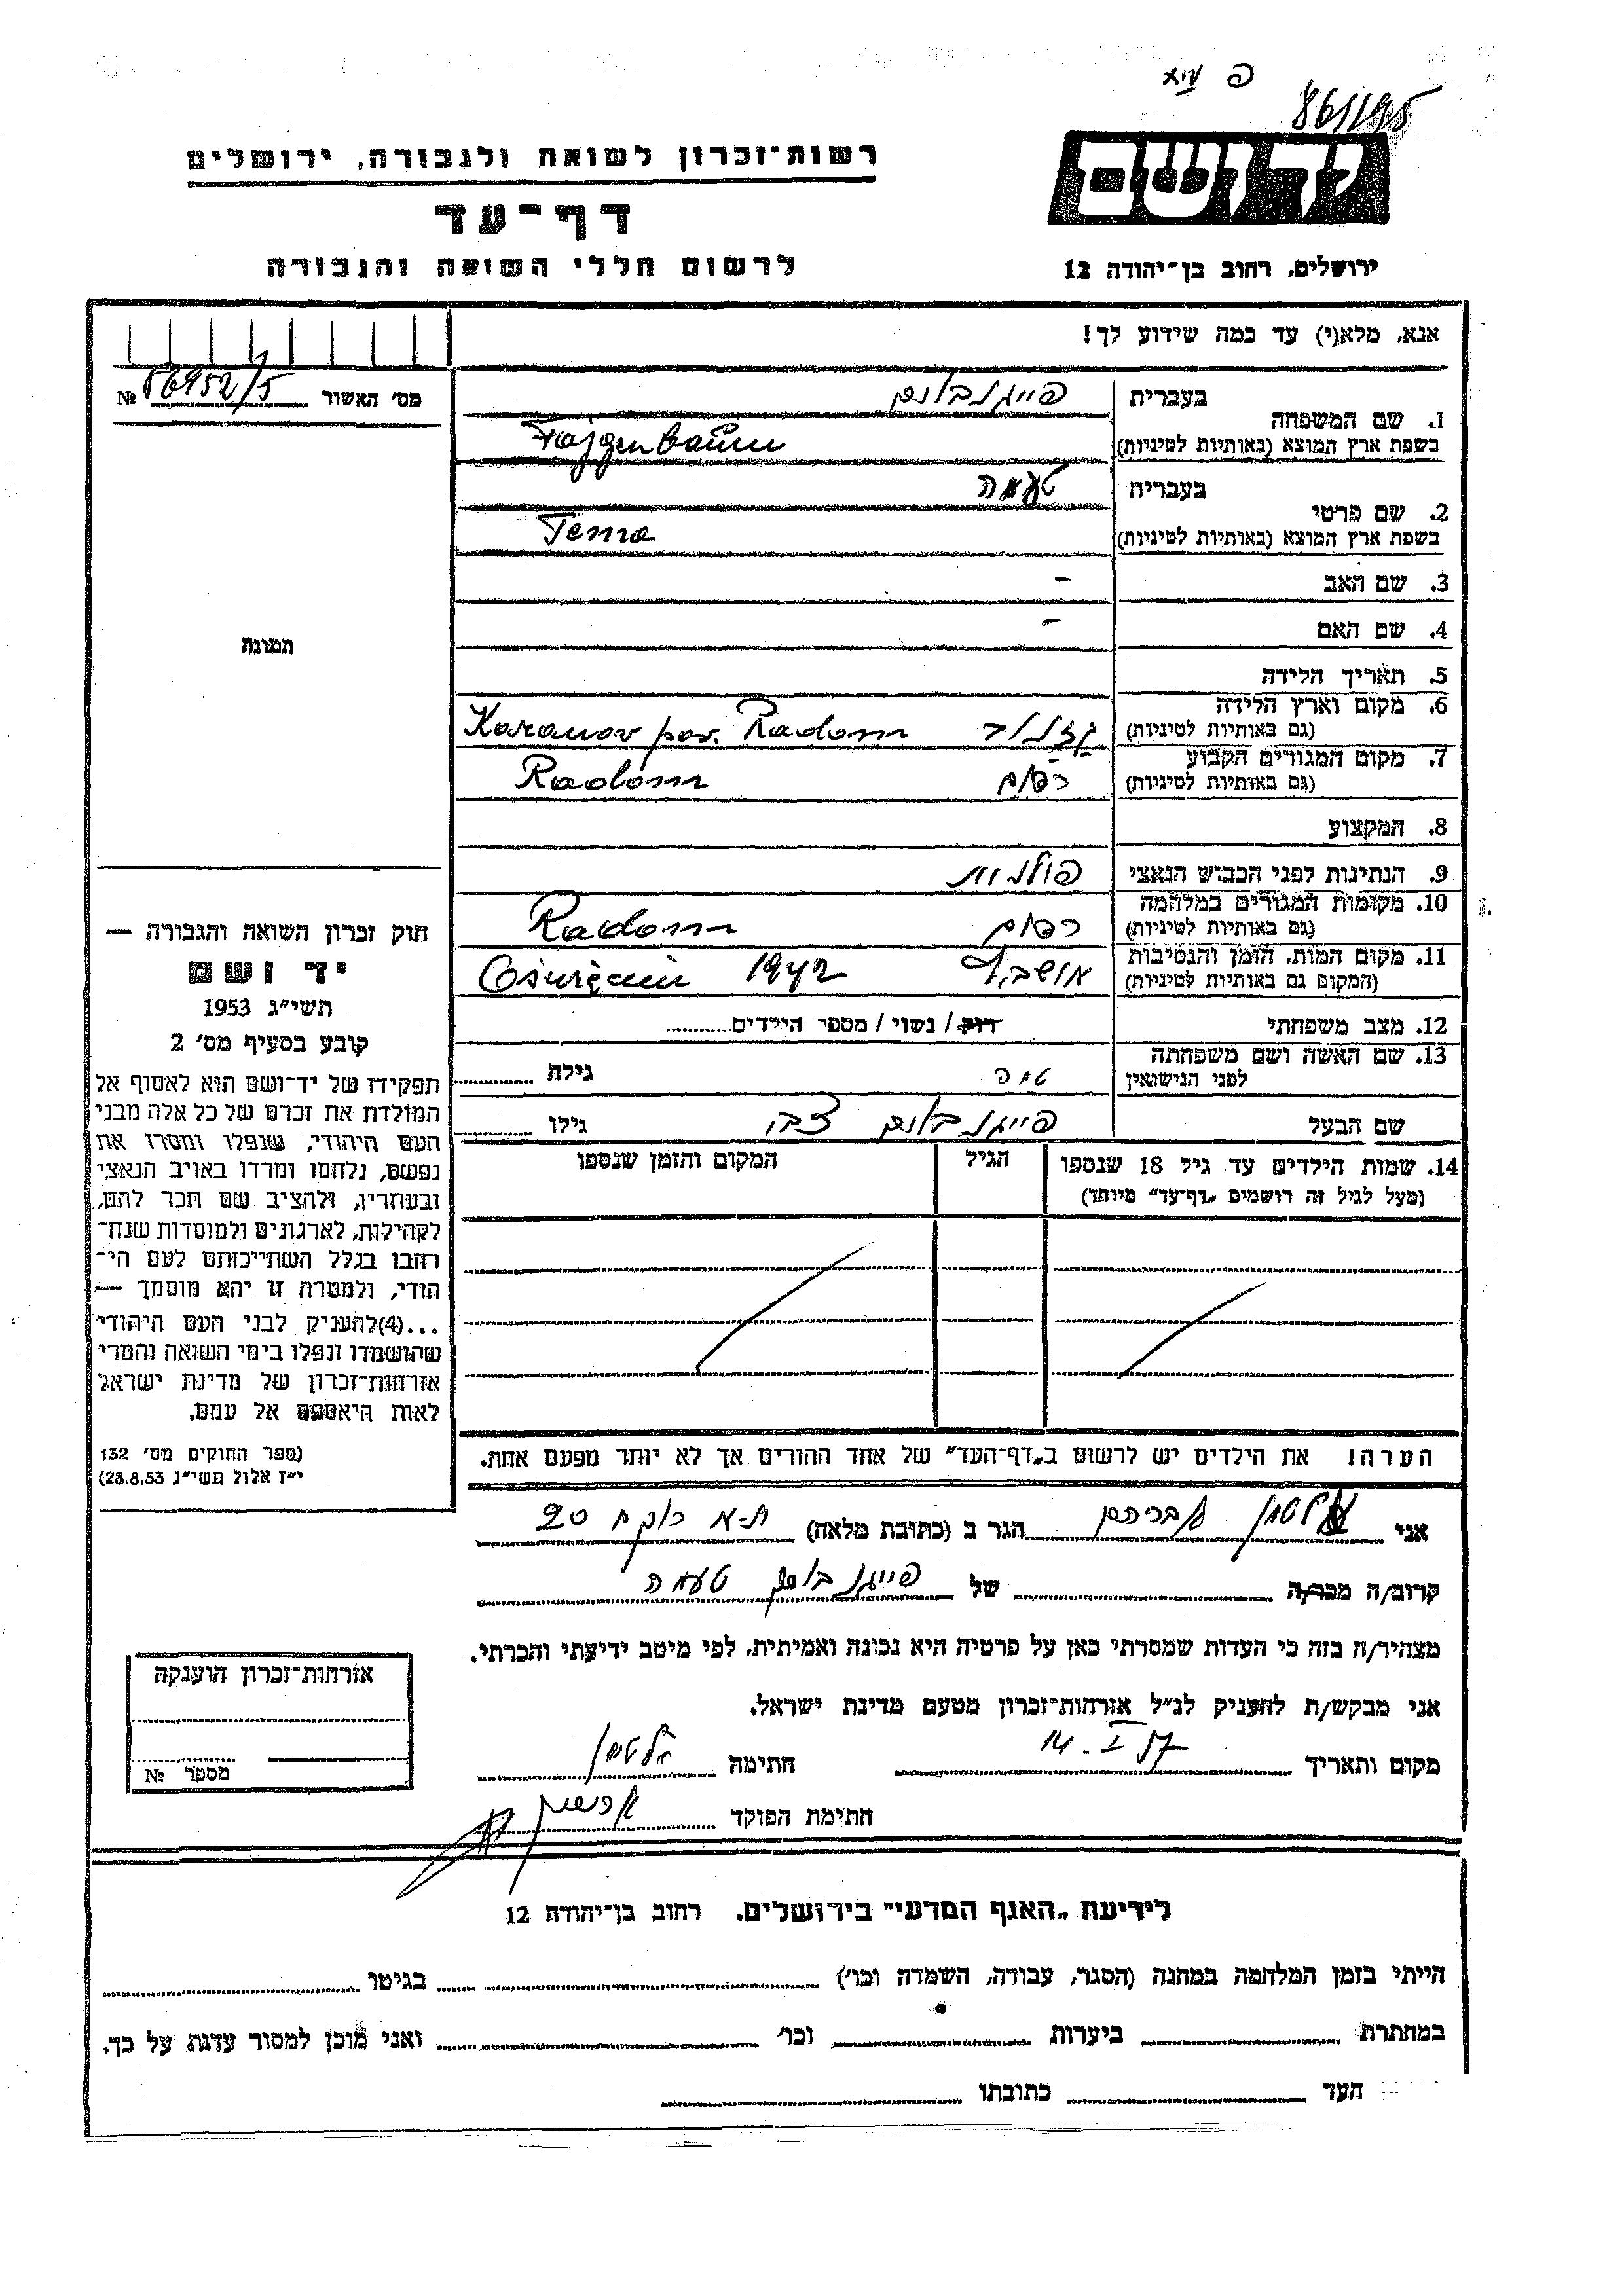 רשות־זכרון לשואה ולגבורה, ירושלים
יד ושם
דף־עד
לרשום חללי השואה והגבורה
ירושלים, רחוב בן־יהודה 12
אנא, מלא(י) עד כמה שידוע לך!
מס׳ האשור № 56952/5
1. שם המשפחה בעברית פייגנבוים
בשפת ארץ המוצא (באותיות לטיניות) Fajgenbaum
2. שם פרטי בעברית טעמה
בשפת ארץ המוצא (באותיות לטיניות) Tema
3. שם האב -
4. שם האם -
5. תאריך הלידה
6. מקום וארץ הלידה
(גם באותיות לטיניות) pov. Radom
7. מקום המגורים הקבוע
(גם באותיות לטיניות) רדום Radom
8. המקצוע
9. הנתינות לפני הכבוש הנאצי פולנית
10. מקומות המגורים במלחמה
(גם באותיות לטיניות) רדום Radom
11. מקום המות, הזמן והנסיבות
(המקום גם באותיות לטיניות) 1942
12. מצב משפחתי רוק / נשוי / מספר הילדים
13. שם האשה ושם משפחתה
לפני הנישואין גילה
שם הבעל פייגנבוים גילו
14. שמות הילדים עד גיל 18 שנספו הגיל המקום והזמן שנספו
(מעל לגיל זה רושמים „דף־עד״ מיוחד)
הערה! את הילדים יש לרשום ב„דף־העד״ של אחד ההורים אך לא יותר מפעם אחת.
תמונה
חוק זכרון השואה והגבורה —
יד ושם
תשי״ג 1953
קובע בסעיף מס׳ 2
תפקידו של יד־ושם הוא לאסוף אל
המולדת את זכרם של כל אלה מבני
העם היהודי, שנפלו ומסרו את
נפשם, נלחמו ומרדו באויב הנאצי
ובעוזריו, ולהציב שם וזכר להם,
לקהילות, לארגונים ולמוסדות שנח־
רבו בגלל השתייכותם לעם הי־
הודי, ולמטרה זו יהא מוסמך —
...(4)להעניק לבני העם היהודי
שהושמדו ונפלו בימי השואה והמרי
אזרחות־זכרון של מדינת ישראל
לאות היאספם אל עמם.
(ספר החוקים מס׳ 132
י״ז אלול תשי״ג 28.8.53)
אני אלטמן אברהם הגר ב (כתובת מלאה) ת-א 20
קרוב/ה מכר/ה של פייגנבוים טעמה
מצהיר/ה בזה כי העדות שמסרתי כאן על פרטיה היא נכונה ואמיתית, לפי מיטב ידיעתי והכרתי.
אני מבקש/ת להעניק לנ״ל אזרחות־זכרון מטעם מדינת ישראל.
מקום ותאריך 14. I 57 חתימה אלטמן
חתימת הפוקד
אזרחות־זכרון הוענקה
מספר №
לידיעת „האגף המדעי״ בירושלים, רחוב בן־יהודה 12
הייתי בזמן המלחמה במחנה (הסגר, עבודה, השמדה וכו׳) בגיטו
במחתרת ביערות וכו׳ ואני מוכן למסור עדות על כך.
העד כתובתו